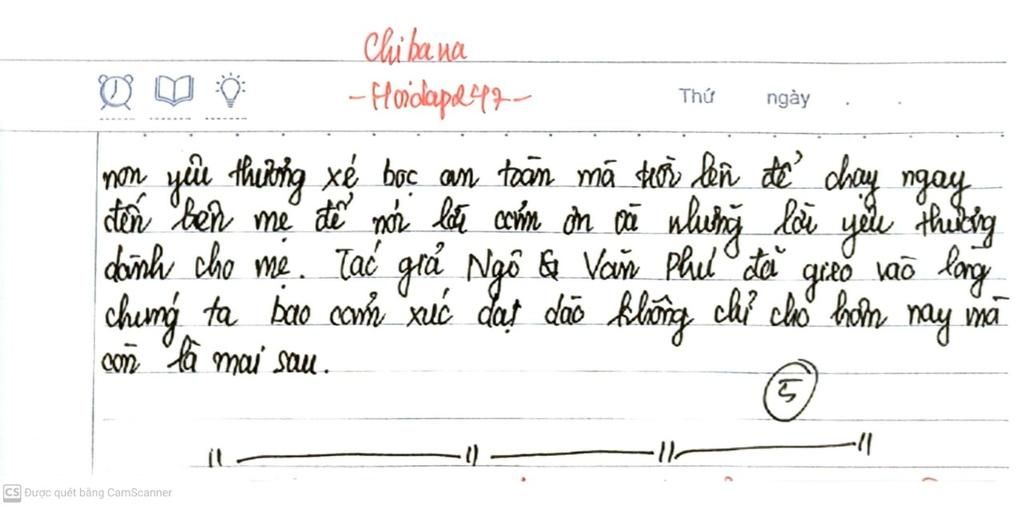 Chibana
-Hoidap247-
Thứ ngày . .
non yêu thương xé bọc an toàn mà trồi lên để chạy ngay
đến bên mẹ để nói lời cảm ơn và những lời yêu thương
dành cho mẹ. Tác giả Ngô Văn Phú đã gieo vào lòng
chúng ta bao cảm xúc dạt dào không chỉ cho hôm nay mà
còn là mai sau.
5
CS Được quét bằng CamScanner